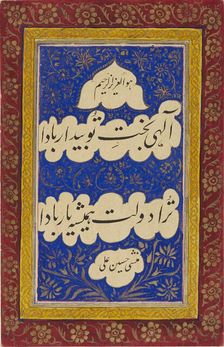 هو العزیز الرحیم
الهی بخت تو بیدار بادا
ترا دولت همیشه یار بادا
منشی حسین علی